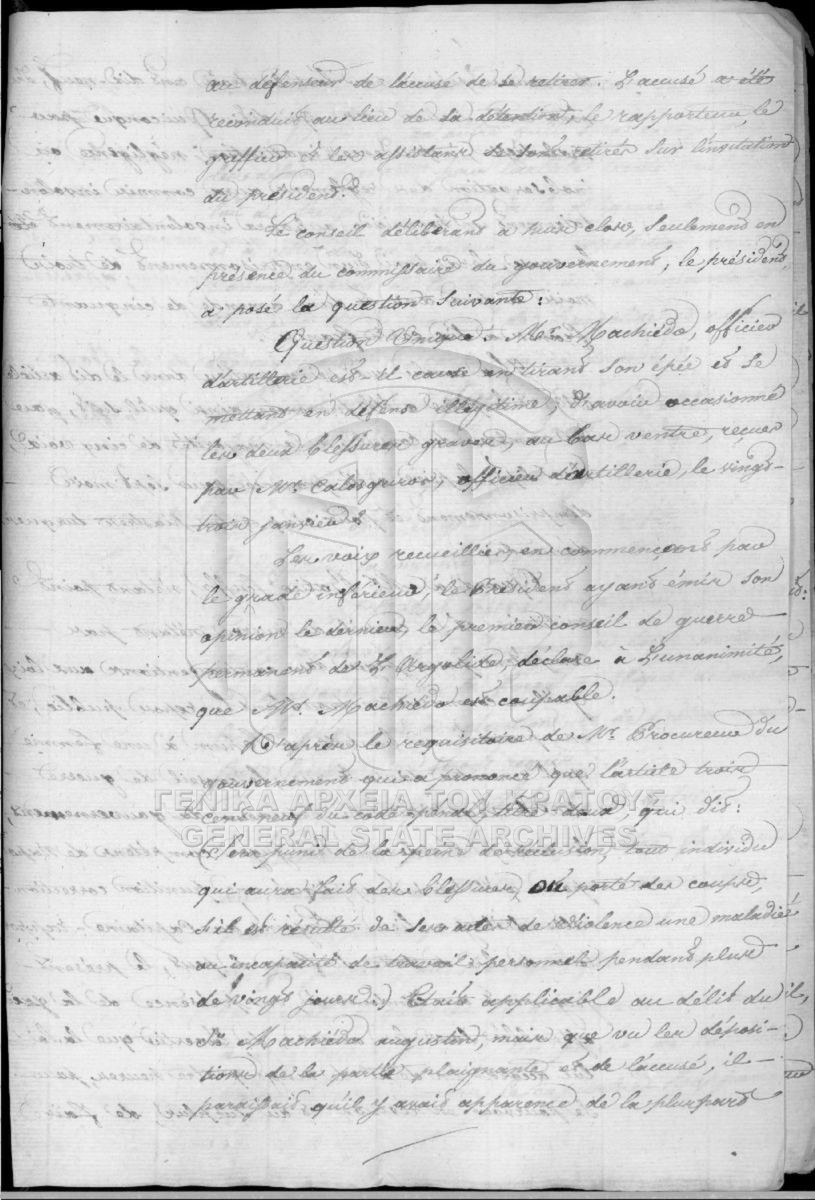 au défenseur de l'accusé de se retirer. L'accusé a été
reconduit au lieu de sa détention, le rapporteur, le
greffier & les assistans se sont retirés sur l'invitation
du président.
Le conseil délibérant à huis clos, seulement en
présence du commissaire du gouvernement, le président,
a posé la question suivante:
Question Unique. Mr. Machiedo, officier
d'artillerie est il cause en tirant son épée et se
mettant en défense illégitime, d'avoir occasionné
les deux blessures graves, au bas ventre, reçues
par Mr. Calosguros, officier d'artillerie, le vingt-
trois janvier?
Les voix recueillies, en commençant par
le grade inférieur, le Président ayant émis son
opinion le dernier, le premier conseil de guerre
permanent de L'Argolide, déclare à L'unanimité,
que Mr. Machiedo est coupable.
D'après le requisitoire de Mr. Procureur du
gouvernement qui a prononcé que l'article trois
cent neuf du code pénal, titre deux, qui dit:
(Sera puni de la peine de réclusion, tout individu
qui aura fait des blessures, ou porté des coups,
s'il est résulté de ses actes de violence une maladie
ou incapacité de travail personnel pendant plus
de vingt jours.) Etait applicable au délit du
Sr. Machiedo augustin, mais que vu les déposi-
tions de la partie plaignante et de l'accusé, il
paraissait qu'il y avait apparence de la plupart
ΓΕΝΙΚΑ ΑΡΧΕΙΑ ΤΟΥ ΚΡΑΤΟΥΣ
GENERAL STATE ARCHIVES